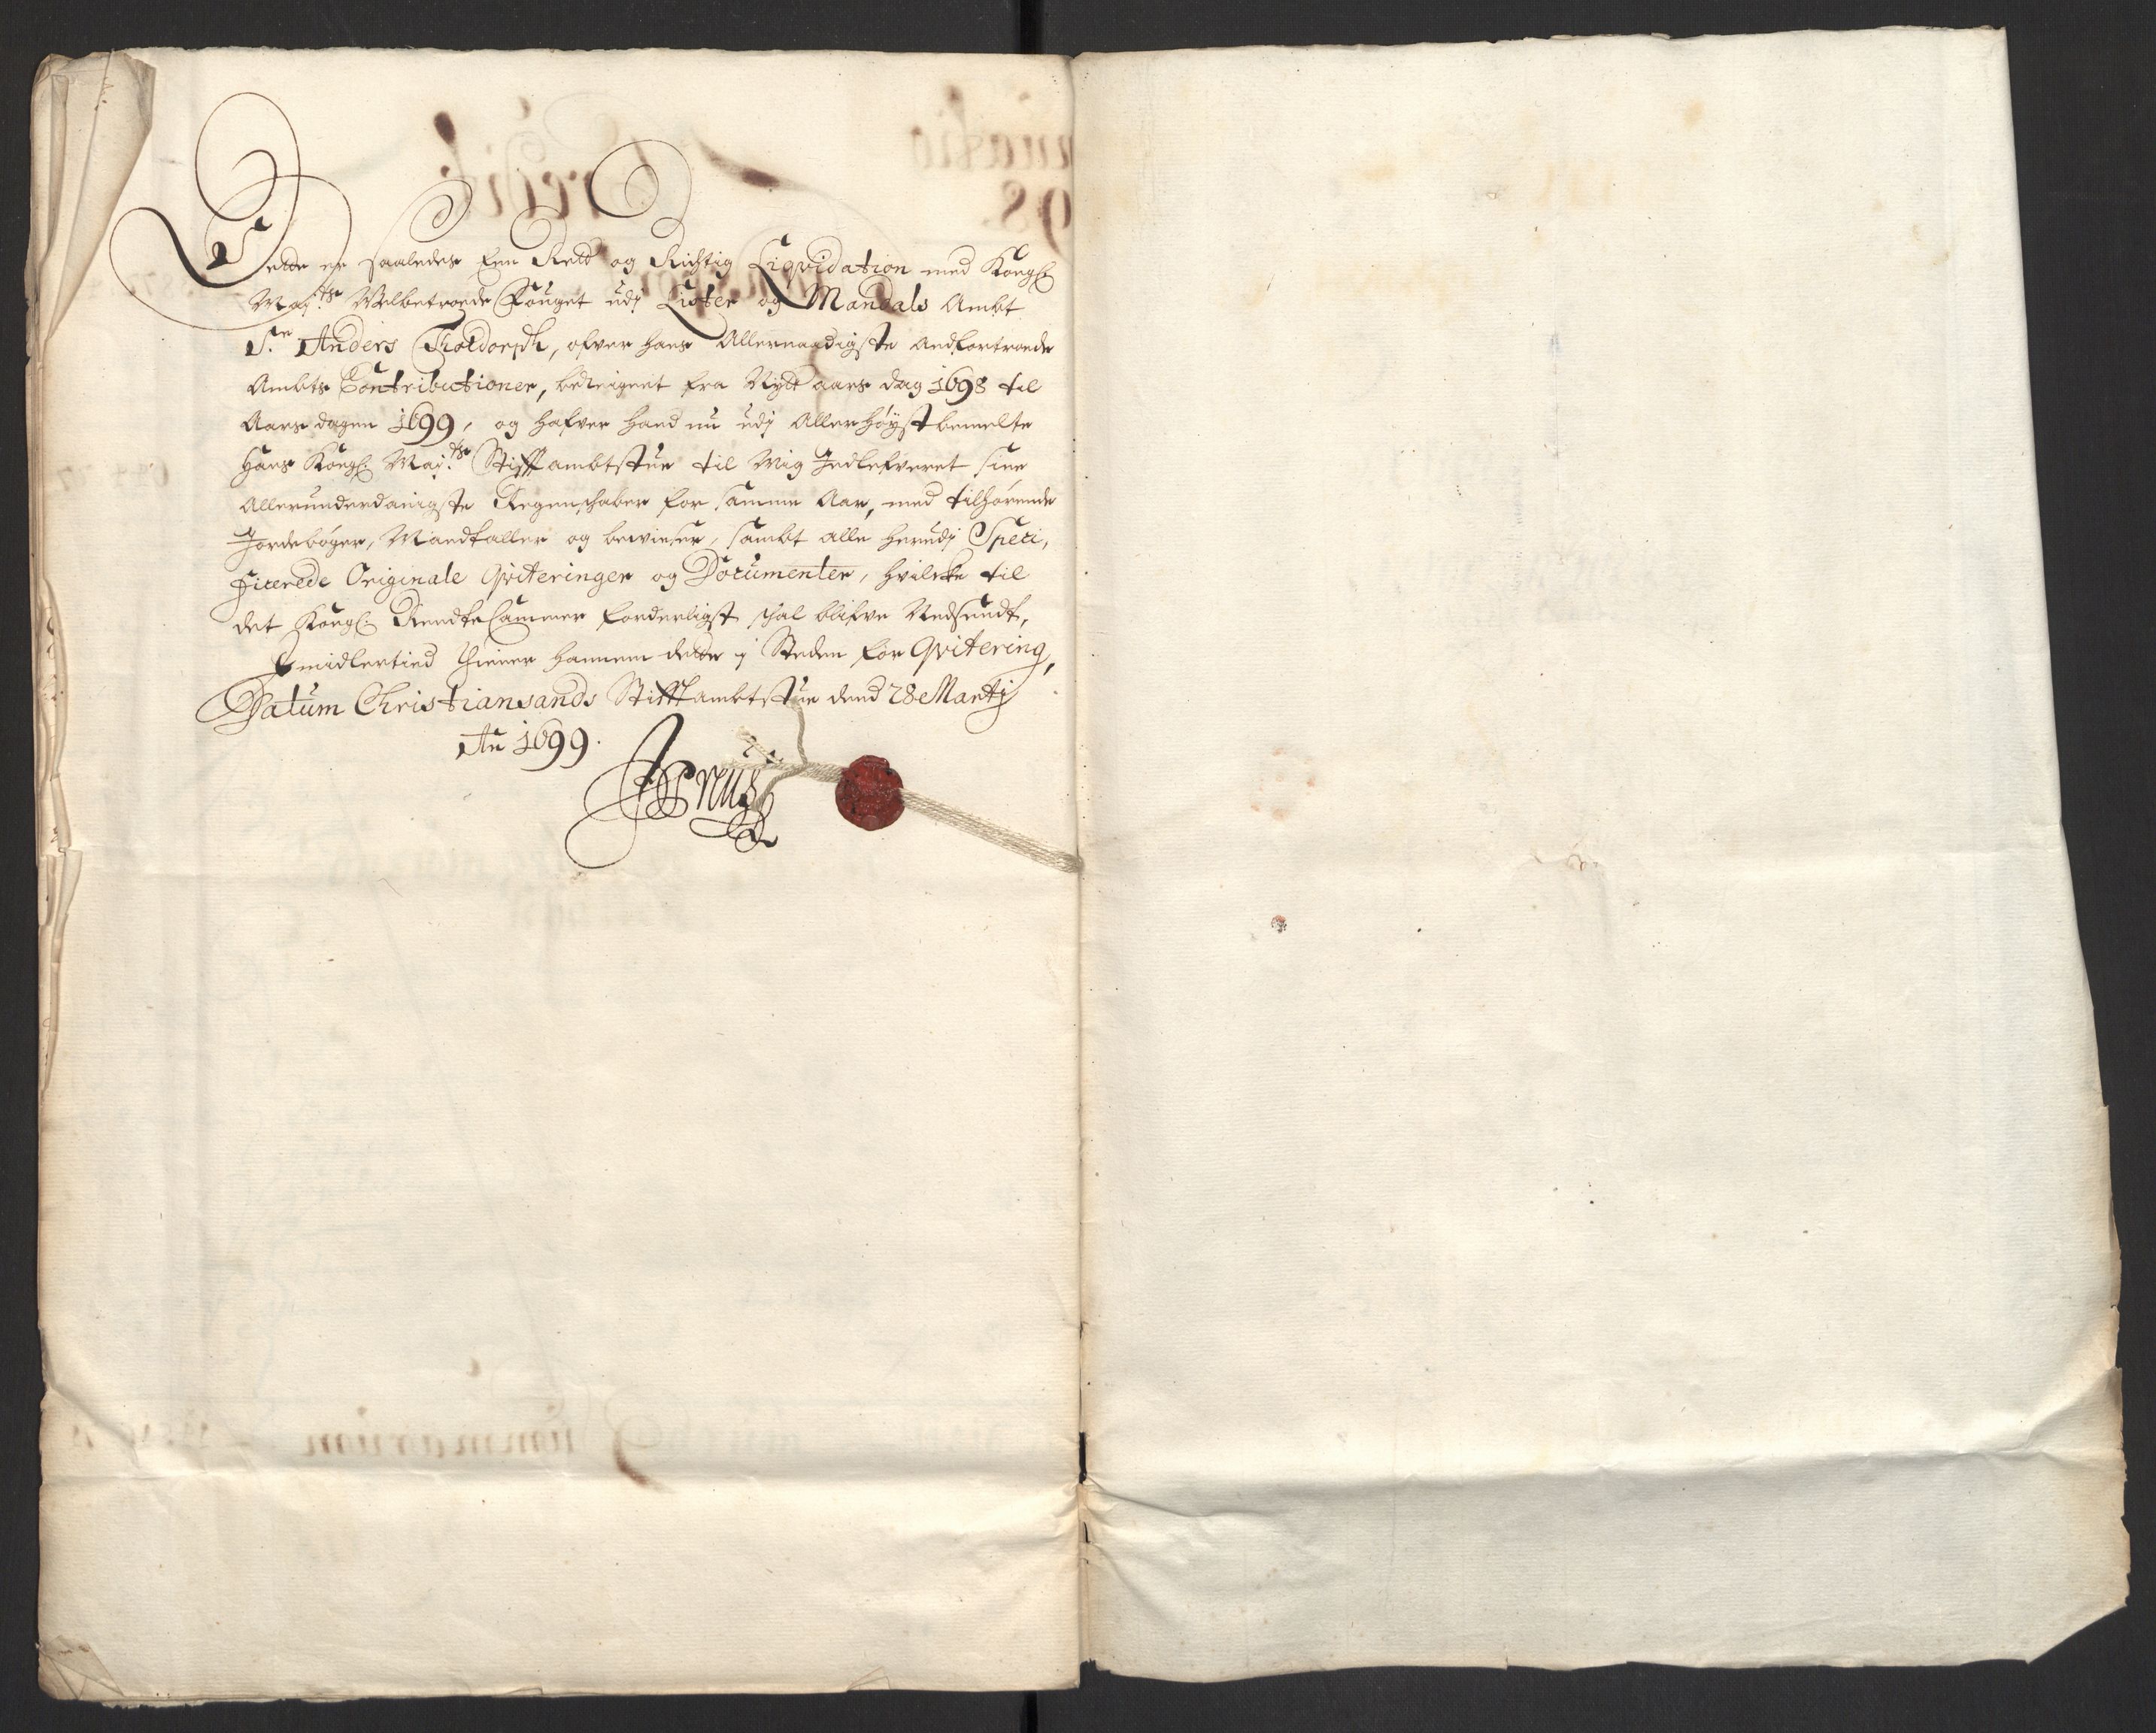 Dette er saaledes Een Rett og Richtig Liqvidation med Kongl:
May:ts Velbetroede Fouget udj Lister og Mandals Ambt
Sr. Anders Toldorph, ofver hans Allernaadigste Andfortroede
Ambts Contributioner, beregnet fra Nytt aars dag 1698 til
Aars dagen 1699, og hafver hand nu udj Allerhøystbemelte
Hans Kongl: May:ts Stifftambtstue til Mig Indlefveret sine
Allerunderdanigste Regenschaber for samme Aar, med tilhørende
Jordebøger, Mandtaller og bewiiser, sambt alle herudj Speci,
ficerede Originale Qviteringer og Documenter, hvilcke til
det Kongl: RendteCammer forderligst schal blifve Nedsendt,
Emidlertied thiener hannem dette j Steden for Qvitering,
Datum Christiansands Stifftambtstue dend 28 Martj
An 1699.